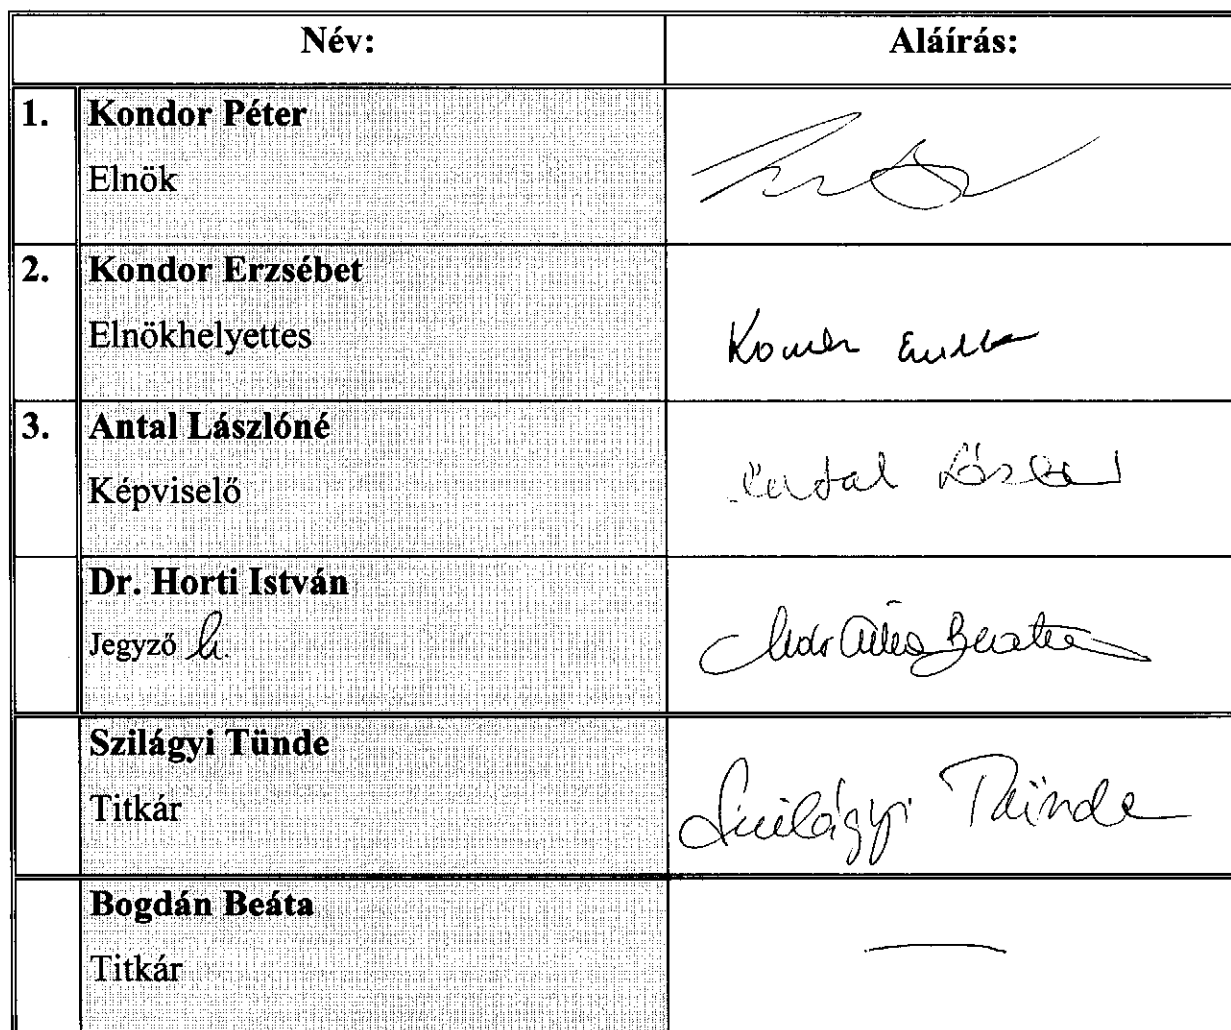 Név: Aláírás:
1. Kondor Péter
Elnök
2. Kondor Erzsébet
Elnökhelyettes
3. Antal Lászlóné
Képviselő
Antal
Dr. Horti István
Jegyző h.
Beáta
Szilágyi Tünde
Titkár
Szilágyi Tünde
Bogdán Beáta
Titkár